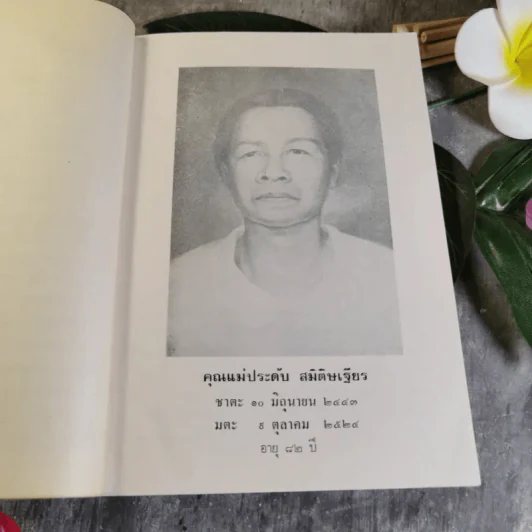 คุณแม่ประดับ สมิติษเฐียร
ชาตะ ๑๐ มิถุนายน ๒๔๔๓
มตะ ๙ ตุลาคม ๒๕๒๔
อายุ ๘๒ ปี